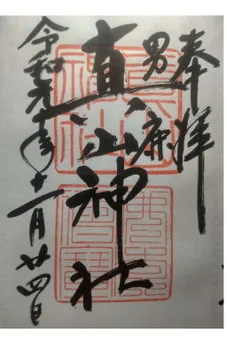 奉拝
男鹿
真山神社
令和元年十一月廿四日